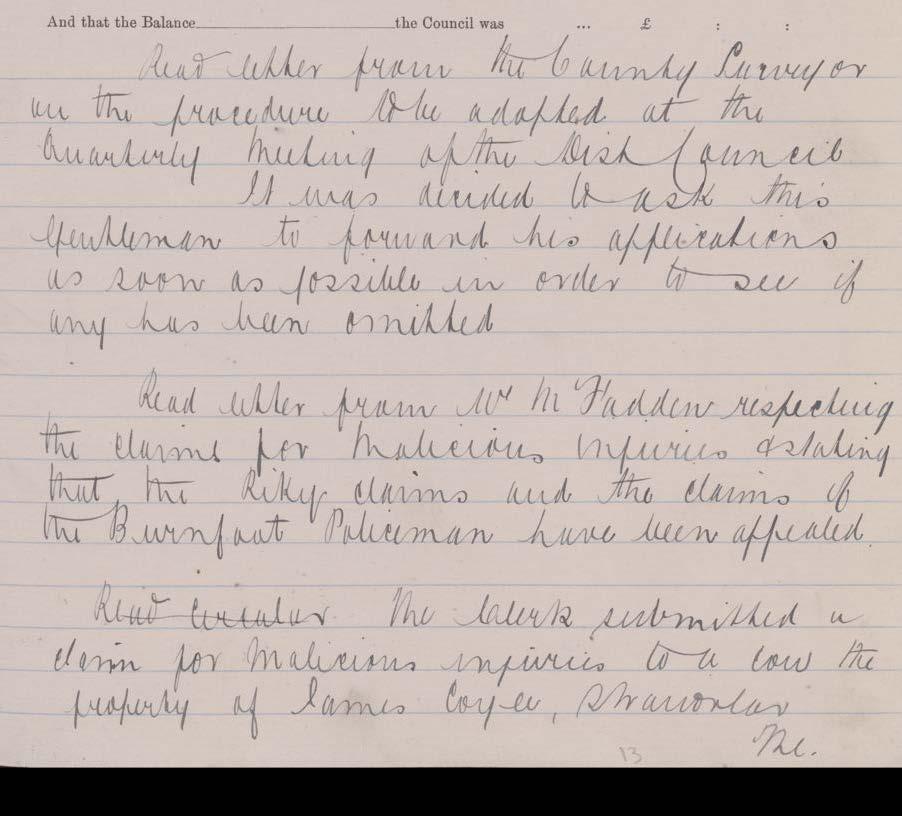 And that the Balance the Council was ... £ : :
Read letter from the County Surveyor
on the procedure to be adopted at the
Quarterly Meeting of the Dist Council
It was decided to ask this
gentleman to forward his applications
as soon as possible in order to see if
any has been omitted
Read letter from Mr McFadden respecting
the claims for Malicious Injuries & stating
that the claims and the claims of
the Burnfoot Policeman have been appealed.
Read circular The Clerk submitted a
claim for Malicious injuries to a cow the
property of James Stranorlar
The.
13